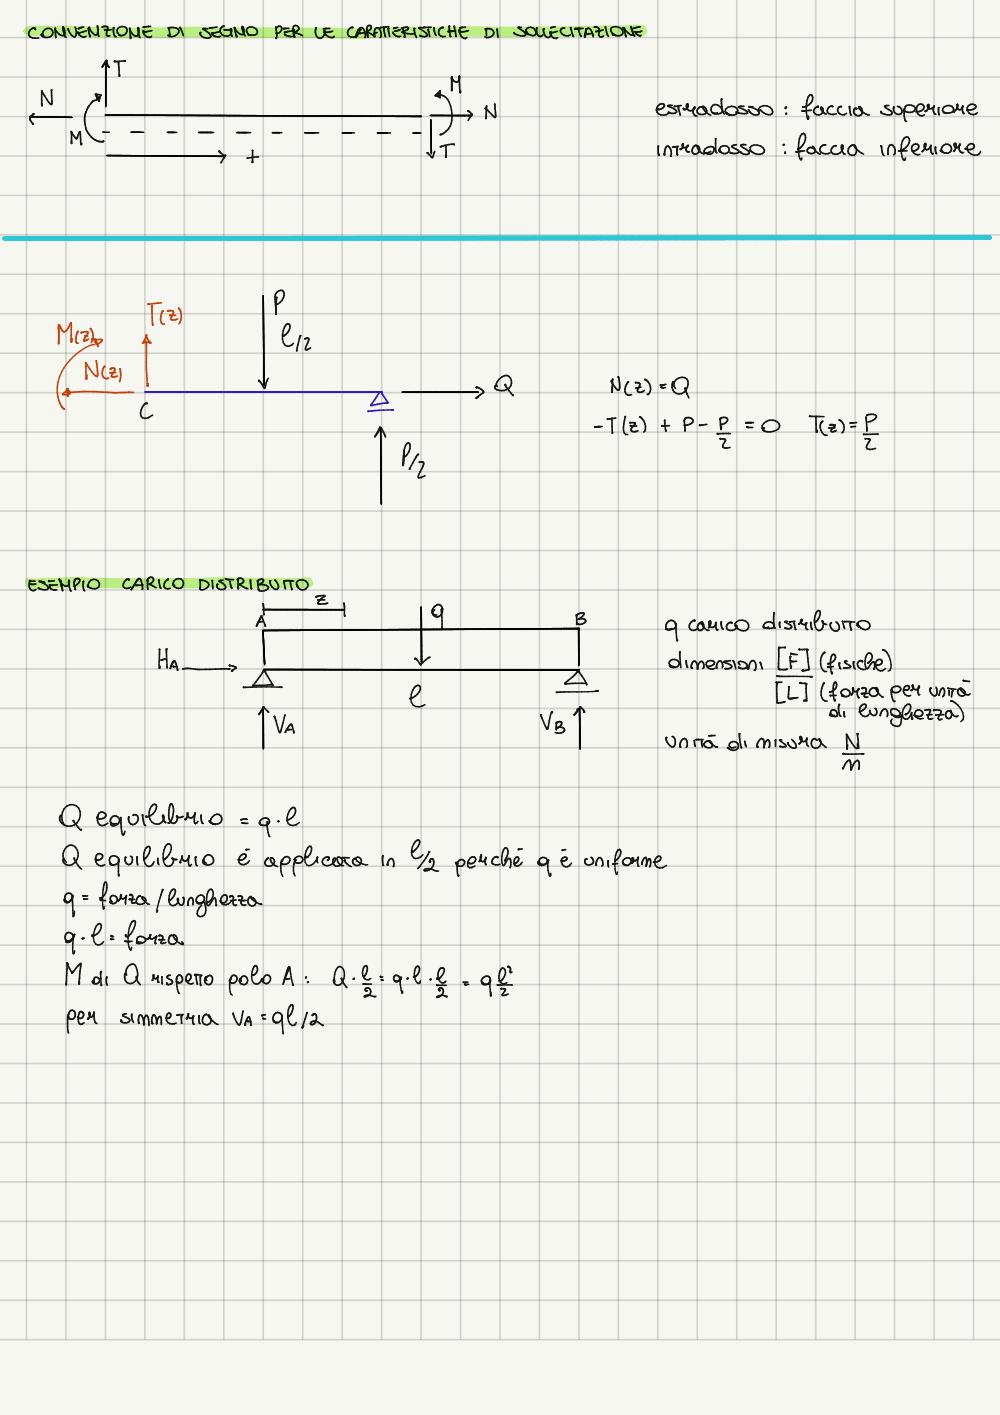 CONVENZIONE DI SEGNO PER LE CARATTERISTICHE DI SOLLECITAZIONE
T
N
M
N
M
+
T
estradosso : faccia superiore
intradosso : faccia inferiore
P
T(z)
l/2
M(z)
N(z)
Q
C
P/2
N(z) = Q
-T(z) + P - P/2 = 0 T(z) = P/2
ESEMPIO CARICO DISTRIBUITO
z
A
q
B
HA
l
VA
VB
q carico distribuito
dimensioni [F] (fisiche)
[L] (forza per unità
di lunghezza)
unità di misura N/m
Q equilibrio = q · l
Q equilibrio é applicata in l/2 perché q è uniforme
q = forza / lunghezza
q · l = forza
M di Q rispetto polo A : Q · l/2 = q · l · l/2 = q l²/2
per simmetria VA = ql/2